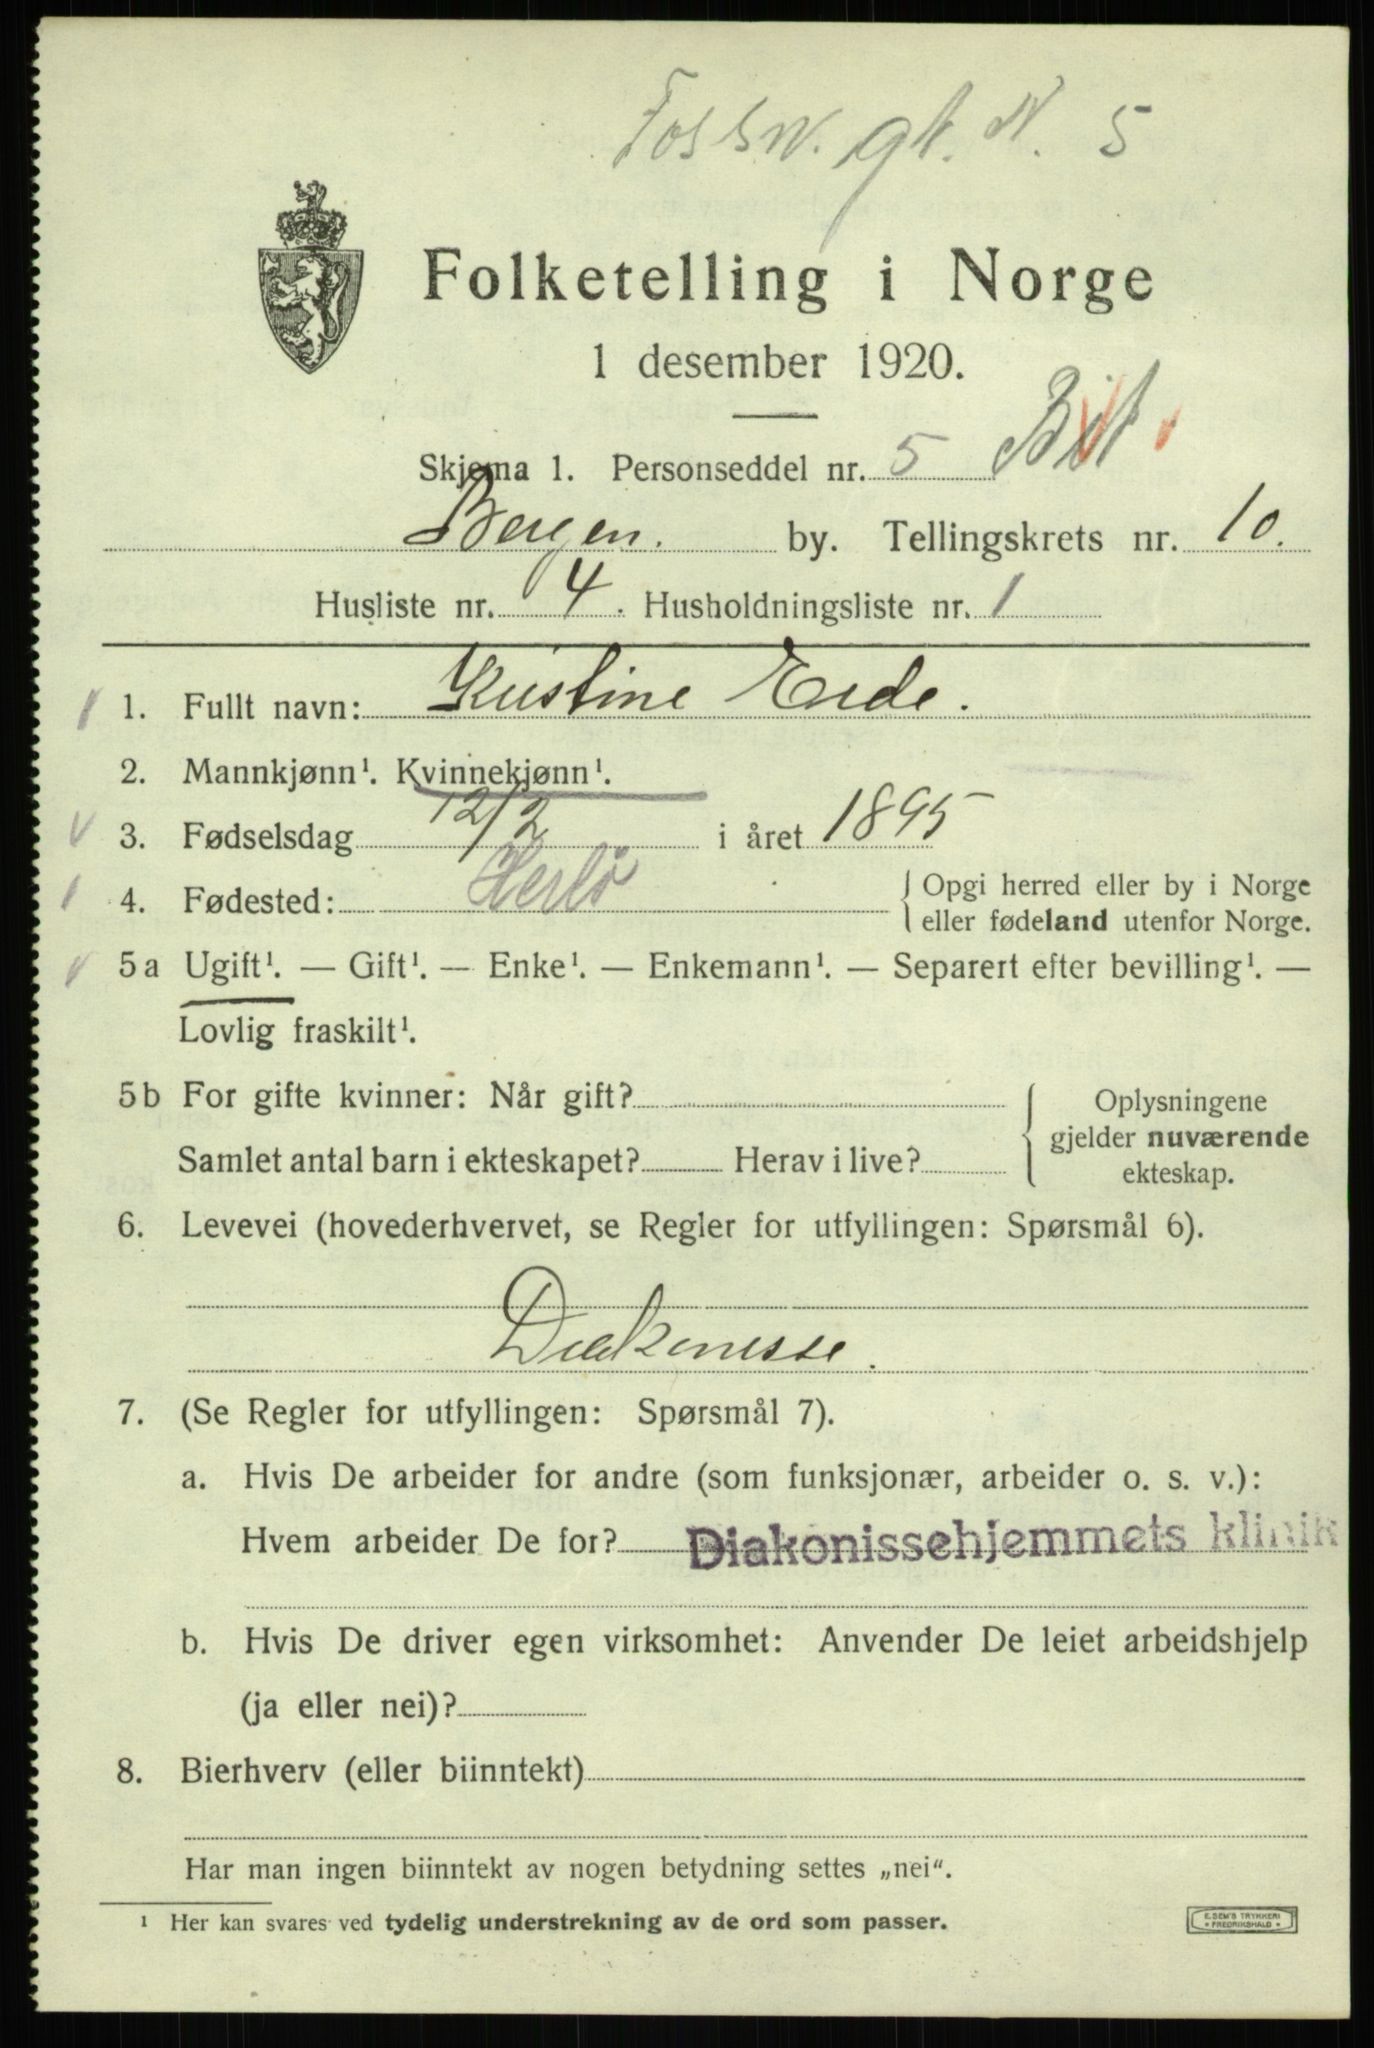 Fossw. gt. N. 5
Folketelling i Norge
1 desember 1920.
Skjema 1. Personseddel nr. 5
Bergen. by. Tellingskrets nr. 10.
Husliste nr. 4. Husholdningsliste nr. 1
1. Fullt navn: Kristine Eide.
2. Mannkjønn¹. Kvinnekjønn¹.
3. Fødselsdag 12/2 i året 1895
4. Fødested: Herlö { Opgi herred eller by i Norge
eller fødeland utenfor Norge.
5a Ugift¹. — Gift¹. — Enke¹. — Enkemann¹. — Separert efter bevilling¹. —
Lovlig fraskilt¹.
5b For gifte kvinner: Når gift? { Oplysningene
gjelder nuværende
Samlet antal barn i ekteskapet? Herav i live? ekteskap.
6. Levevei (hovederhvervet, se Regler for utfyllingen: Spørsmål 6).
Diakonisse.
7. (Se Regler for utfyllingen: Spørsmål 7).
a. Hvis De arbeider for andre (som funksjonær, arbeider o. s. v.):
Hvem arbeider De for? Diakonissehjemmets klinik
b. Hvis De driver egen virksomhet: Anvender De leiet arbeidshjelp
(ja eller nei)?
8. Bierhverv (eller biinntekt)
Har man ingen biinntekt av nogen betydning settes „nei“.
¹ Her kan svares ved tydelig understrekning av de ord som passer.
E. SEM'S TRYKKERI
* FREDRIKSHALD *